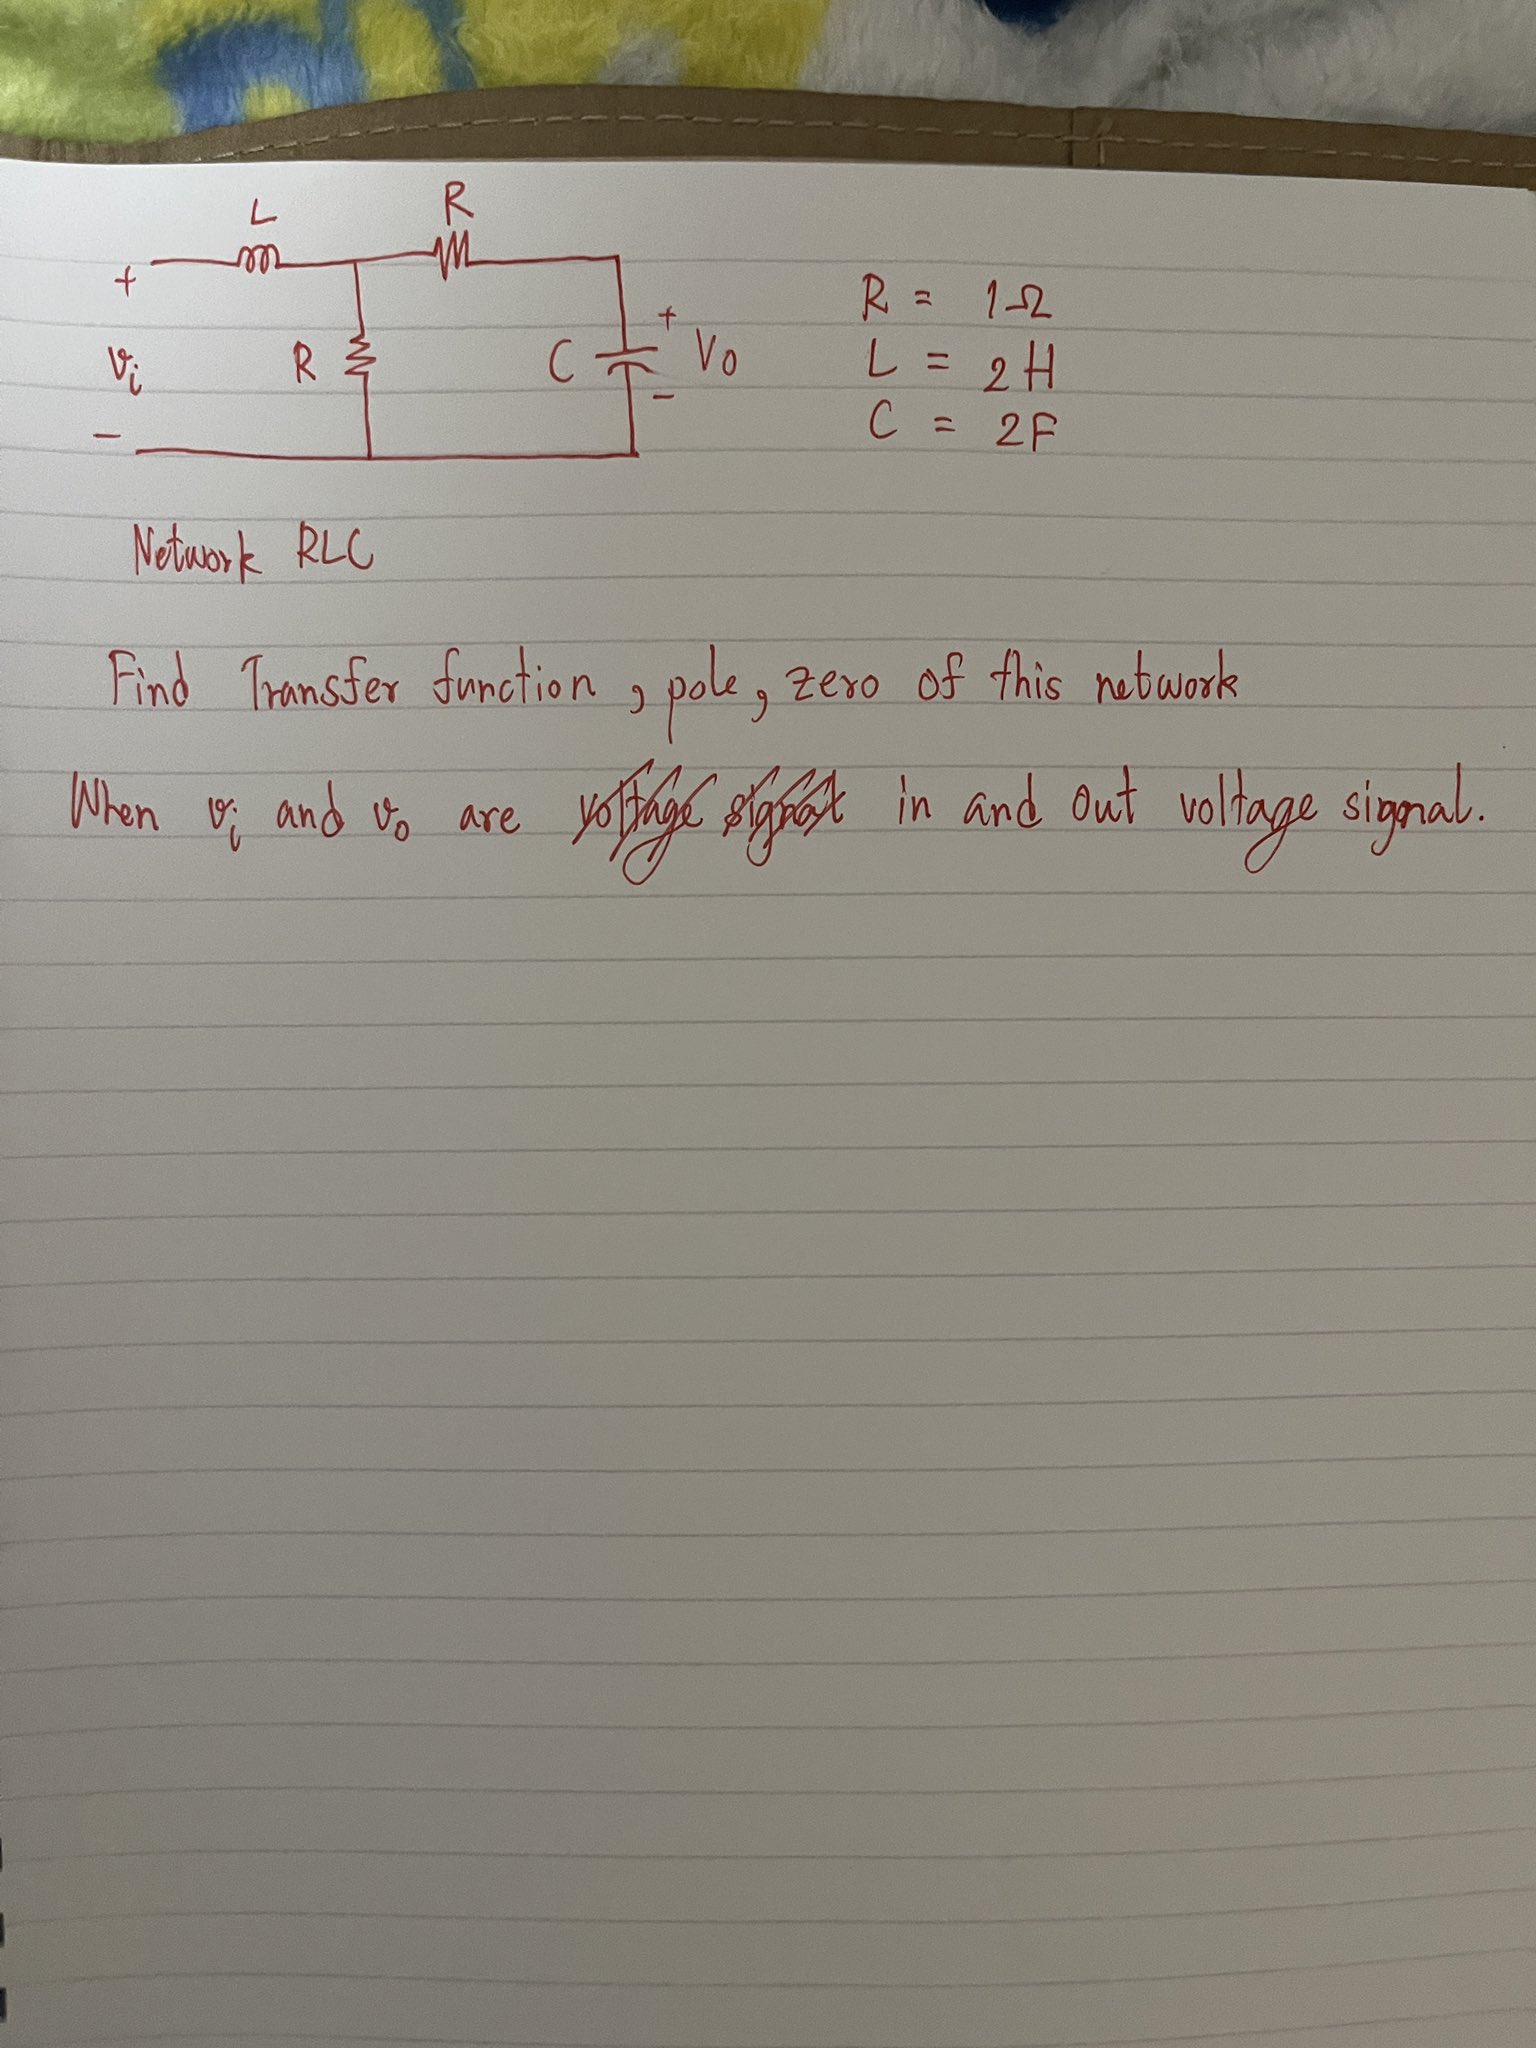 L
R
+
vi
-
R
C
+
Vo
-
R = 1Ω
L = 2H
C = 2F
Network RLC
Find Transfer function, pole, zero of this network
When vi and vo are voltage signal in and out voltage signal.